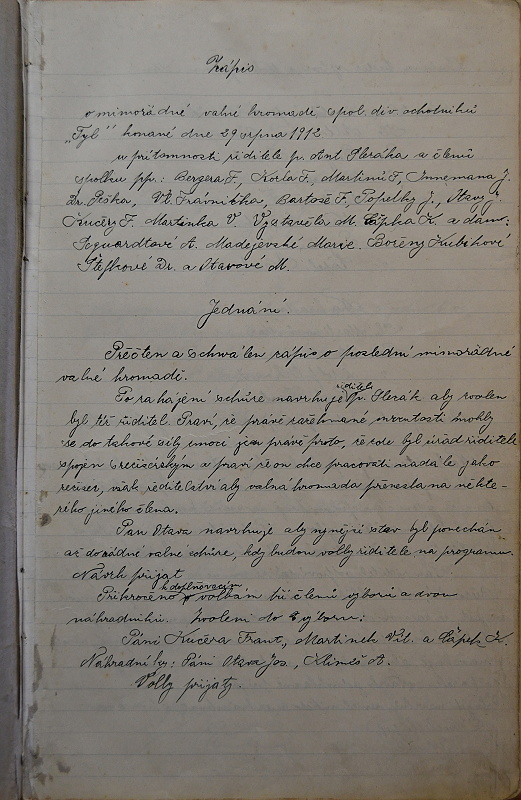 Zápis
o mimořádné valné hromadě spol. div. ochotníků
"Tyl" konané dne 29 srpna 1912
u přítomnosti ředitele p. Ant. Sleráka a členů
spolku pp.: Bergera F., Korla F., Martinů F., Innemana J.
Dr. Peška, Vl. Trávníčka, Bartoše F., Popelky J., Otavy J.
Kučery F. Martinka V. Vystavěla M. Čápka K. a dam:
Madejevské Marie. Boženy Kubíkové
Štefkové Dr. a Otavové M.
Jednání.
Přečten a schválen zápis o poslední mimořádné
valné hromadě.
Po zahájení schůze navrhuje ředitel p. Slerák aby zvolen
byl též ředitel. Praví, že právě roztrhané mohly
se do takové síly jen právě proto, že zde byl úřad ředitele
spojen s režisérským a praví že on chce pracovati nadále jako
režiser, však ředitelství aby valná hromada přenesla na někte-
rého jiného člena.
Pan Otava navrhuje aby nynější stav byl ponechán
až do řádné valné schůze, kdy budou volby ředitele na programu.
Návrh přijat
Přikročeno k doplňovacím volbám tří členů výboru a dvou
náhradníků. Zvoleni do výboru:
Páni Kučera Frant., Martinek Vil. a Čápek K.
Náhradníky: Páni Otava Jos., Klimeš A.
Volby přijaty.